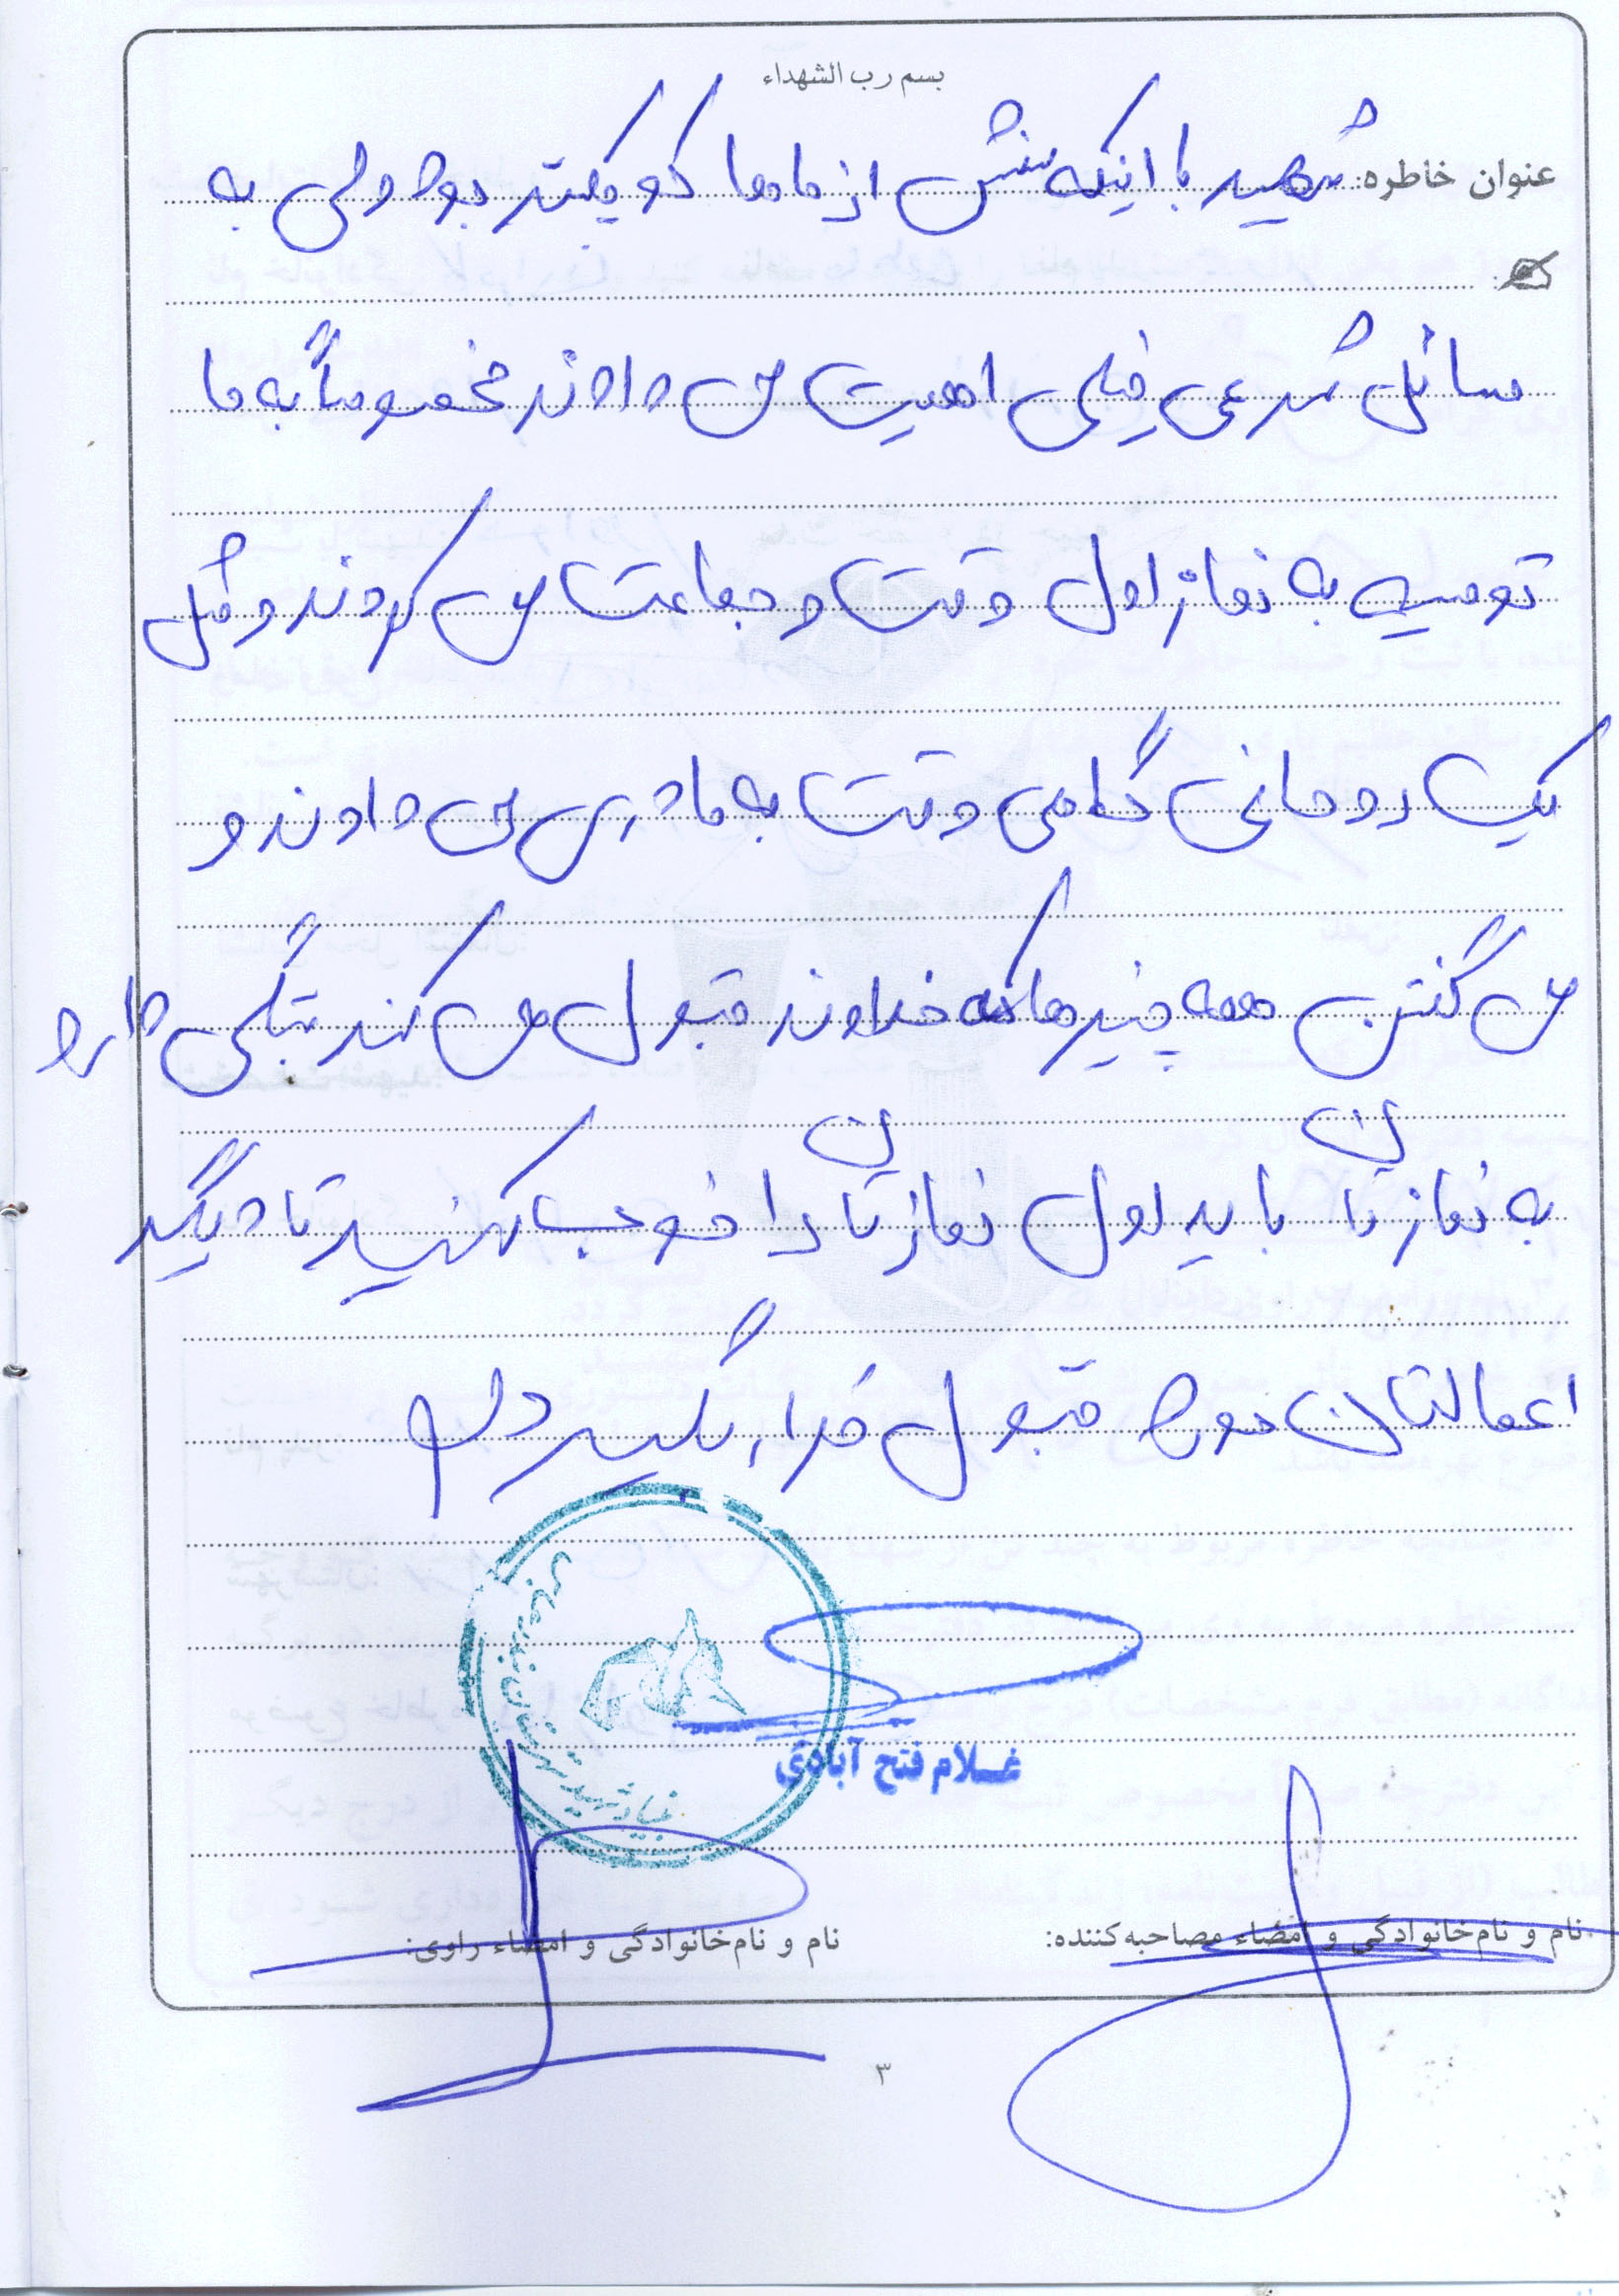 بسم رب الشهداء
عنوان خاطره: شهید با اینکه سنش از ماها کوچکتر بود ولی به
مسائل شرعی خیلی اهمیت می دادند مخصوصاً به ما
توصیه به نماز اول وقت و جماعت می کردند و مثل
یک روحانی گاهی وقت به ما درس می دادند و
می گفتن همه چیزها که خداوند قبول می کند بستگی دارد
به نمازتان باید اول نمازتان را خوب کنید تا دیگر
اعمالتان مورد قبول قرار بگیرد
غلام فتح آبادی
نام و نام‌خانوادگی و امضاء مصاحبه‌کننده:
نام و نام‌خانوادگی و امضاء راوی:
۳